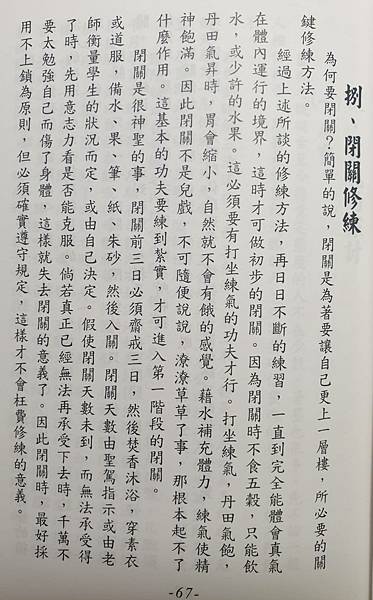 捌、閉關修練
為何要閉關？簡單的說，閉關是為著要讓自己更上一層樓，所必要的關
鍵修練方法。
經過上述所談的修練方法，再日日不斷的練習，一直到完全能體會真氣
在體內運行的境界，這時才可做初步的閉關。因為閉關時不食五穀，只能飲
水，或少許的水果。這必須要有打坐練氣的功夫才行。打坐練氣，丹田氣飽，
丹田氣昇時，胃會縮小，自然就不會有餓的感覺。藉水補充體力，練氣使精
神飽滿。因此閉關不是兒戲，不可隨便說說，潦潦草草了事，那根本起不了
什麼作用。這基本的功夫要練到紮實，才可進入第一階段的閉關。
閉關是很神聖的事，閉關前三日必須齋戒三日，然後焚香沐浴，穿素衣
或道服，備水、果、筆、紙、朱砂，然後入關。閉關天數由聖駕指示或由老
師衡量學生的狀況而定，或由自己決定。假使閉關天數未到，而無法承受得
了時，先用意志力看是否能克服。倘若真正已經無法再承受下去時，千萬不
要太勉強自己而傷了身體，這樣就失去閉關的意義了。因此閉關時，最好採
用不上鎖為原則，但必須確實遵守規定，這樣才不會枉費修練的意義。
-67-